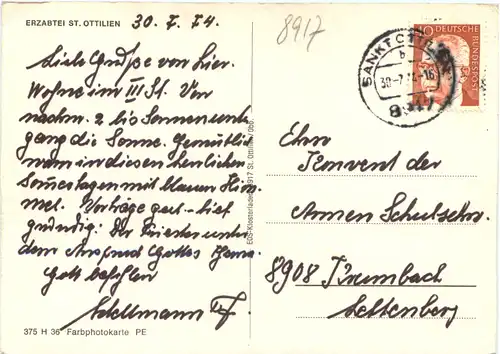 ERZABTEI ST. OTTILIEN 30.7.74.
Liebe Grüße von hier.
Wohne im III St. Von
nachm. 2 bis Sonnenunter
gang die Sonne. Gemütlich
warm in diesen herrlichen
Sommertagen mit blauem Him
mel. Vorträge gut - tief
gründig: Der Priester unter
dem Anspruch Gottes
Gott befohlen
375 H 36 Farbphotokarte PE
EOS-Klosterladen 8917 St. Ottilien/Obb.
8917
SANKT OTTILIEN
b
30.-7.74-16
8917
DEUTSCHE BUNDESPOST
Ehrw
Konvent der
Armen Schulschw.
8908 Krumbach